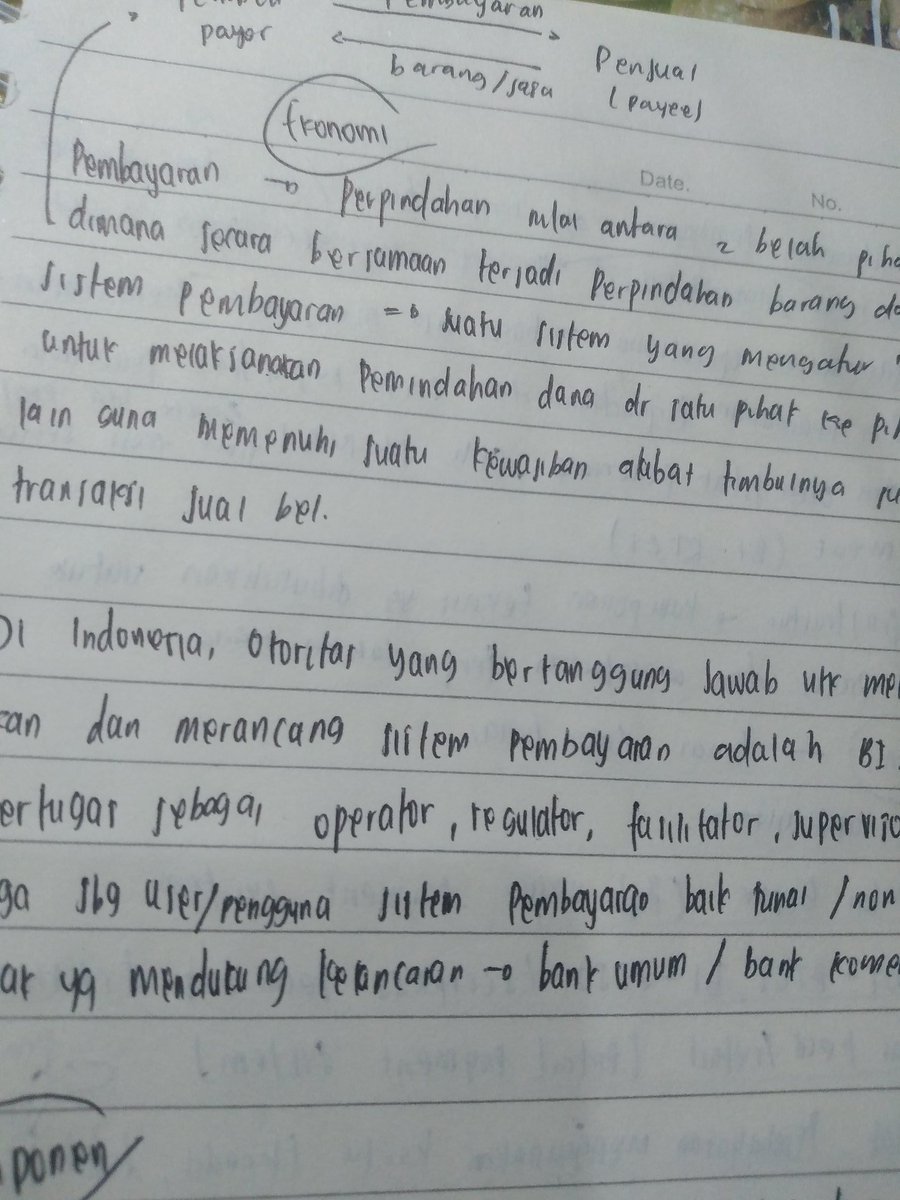 Pembayaran
payor
barang/jasa
Penjual
(payee)
Ekonomi
Date.
No.
Pembayaran → Perpindahan nilai antara 2 belah piha
dimana secara bersamaan terjadi Perpindahan barang da
sistem Pembayaran => suatu sistem yang mengatur
untuk melaksanakan Pemindahan dana dr satu pihak ke pi
lain guna memenuhi suatu kewajiban akibat timbulnya su
transaksi jual beli.
Di Indonesia, otoritas yang bertanggung Jawab utk me
kan dan merancang sistem Pembayaran adalah BI
ertugas sebagai operator, regulator, fasilitator, supervis
ga sbg user/pengguna sistem Pembayaran baik tunai / non
ak yg mendukung kelancaran → bank umum / bank kome
ponen